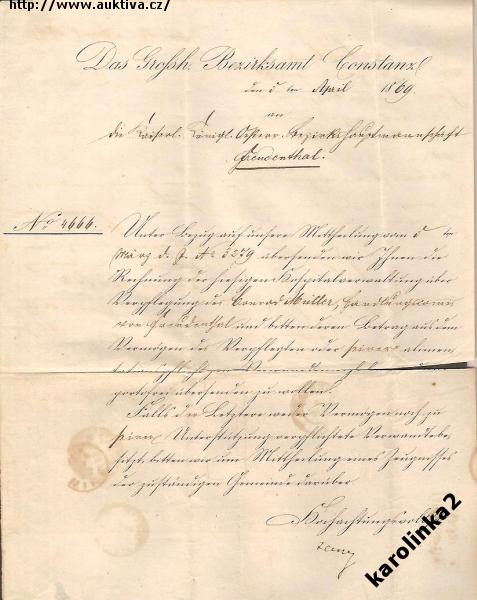 http://www.auktiva.cz/
Das Großh. Bezirksamt Constanz
den 5 ten April 1869
an
die Kaiserl. Königl. Oesterr. Bezirkshauptmannschaft
Freudenthal.
No 4666.
Unter Bezug auf unsere Mittheilung vom 5 ten
März d. J. No 3279 übersenden wir Ihnen die
Rechnung der hiesigen Hospitalverwaltung über
Verpflegung des Conrad Müller, Handlungscomis
von Freudenthal und bitten deren Betrag aus dem
Vermögen des Verpflegten oder seiner alimen-
portofrei übersenden zu wollen.
Falls der Letztere weder Vermögen noch zu
seiner Unterstützung verpflichtete Verwandte be-
sitzt, bitten wir um Mittheilung eines Zeugnisses
der zuständigen Gemeinde darüber.
Hochachtungsvoll
karolinka2